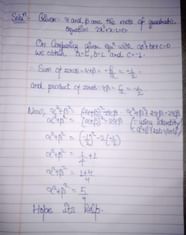 Solⁿ
Given α and β are the roots of quadratic
equation 2x²+x-1=0
On Comparing given eqⁿ with ax²+bx+c=0
we obtain a=2, b=1 and c=-1.
Sum of zeros = α+β = -b/a = -1/2
and product of zeros = αβ = c/a = -1/2
Now, α²+β² = (α+β)²-2αβ
α²+β² = (α+β)²-2αβ
α²+β² = (-1/2)²-2(-1/2)
α²+β² = 1/4+1
α²+β² = 1+4/4
α²+β² = 5/4
Hope its help.